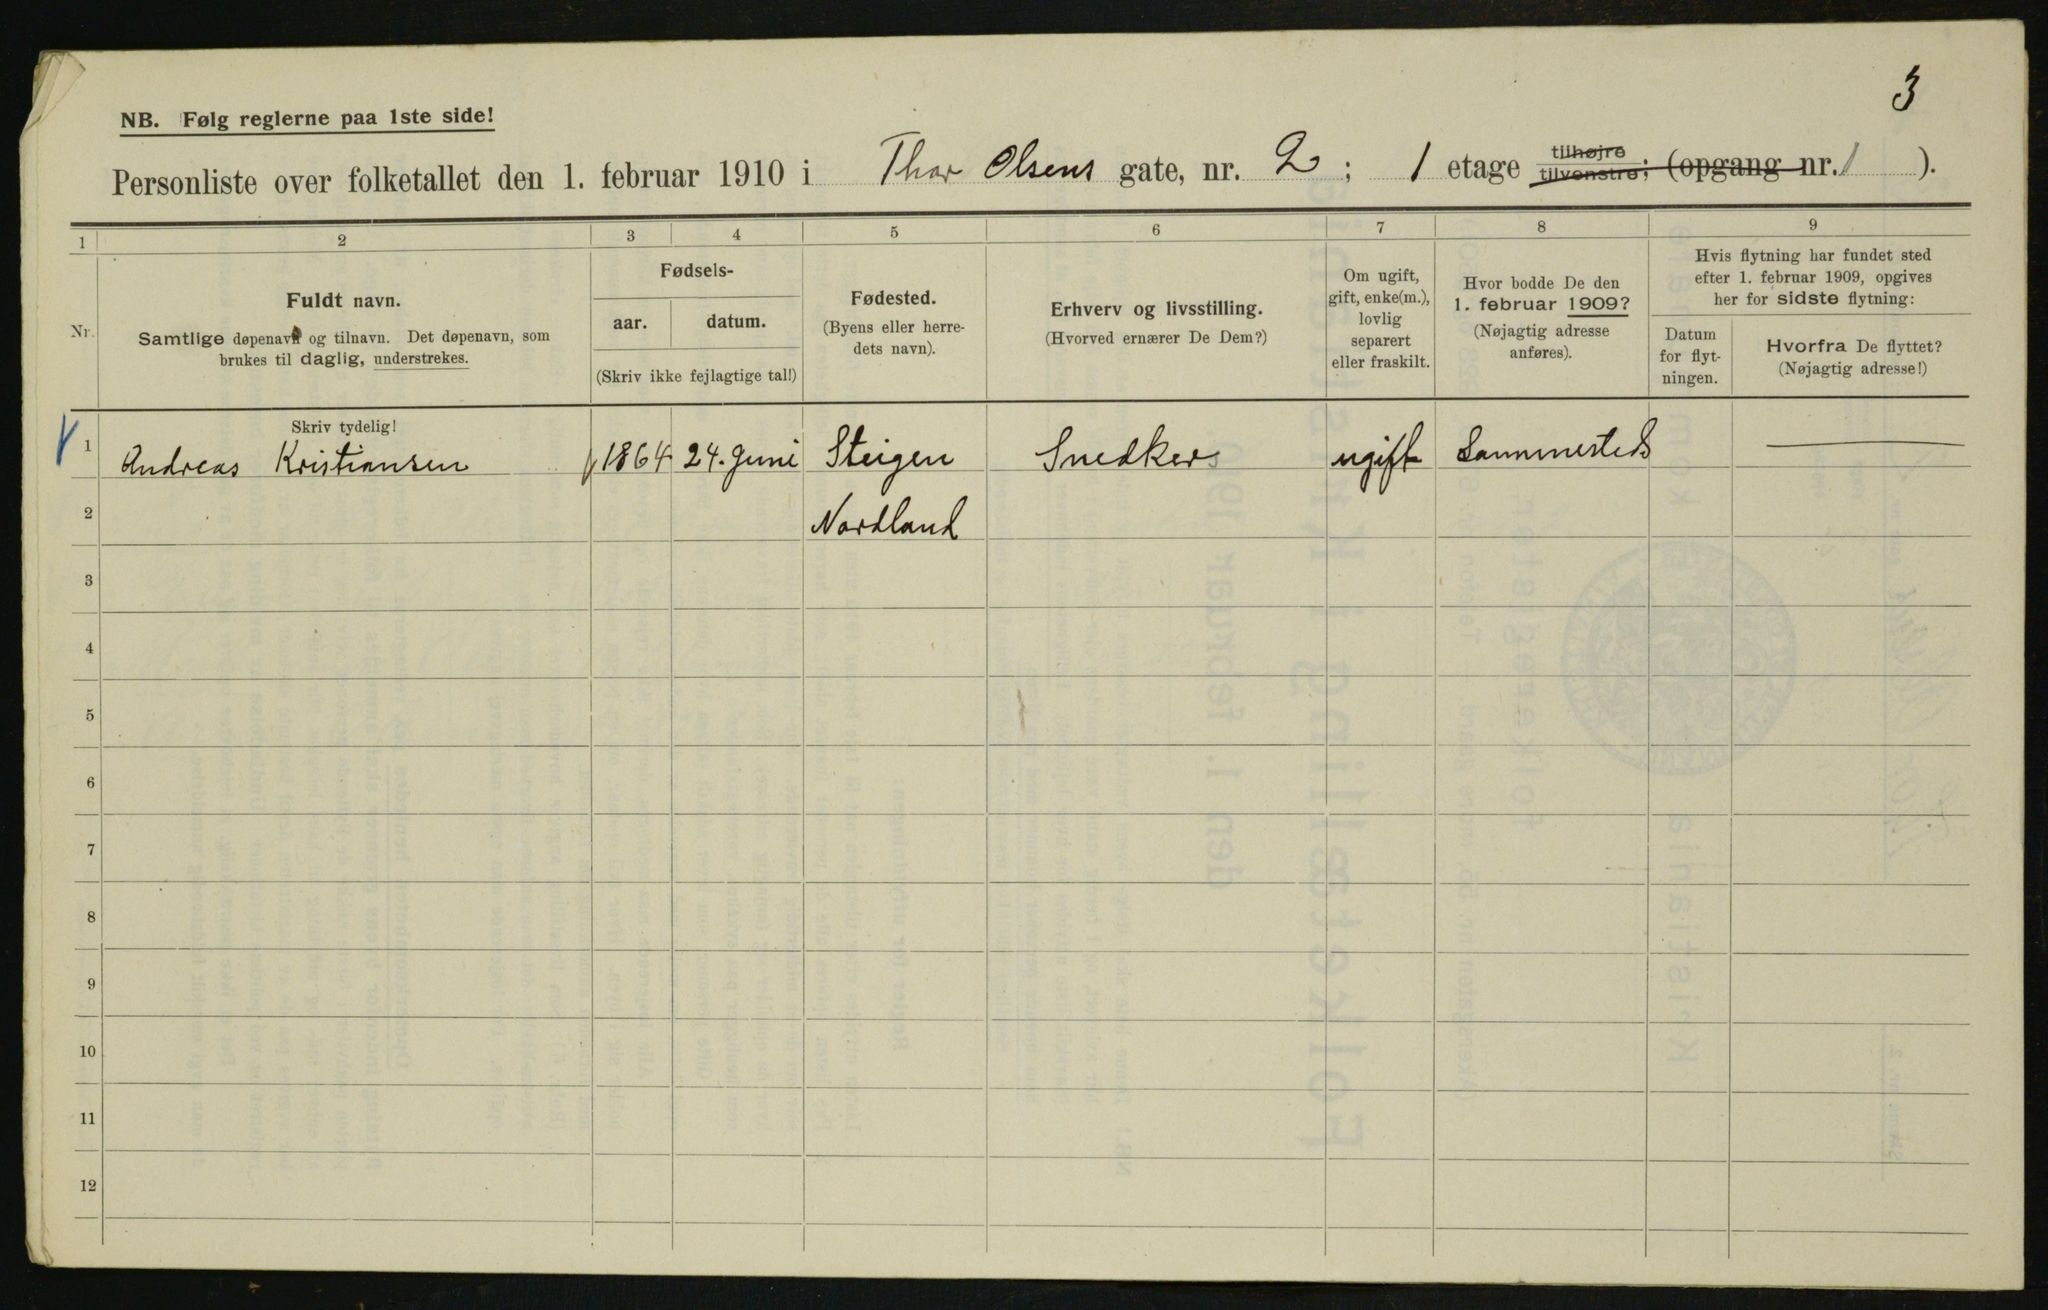 3
NB. Følg reglerne paa 1ste side!
Personliste over folketallet den 1. februar 1910 i Thor Olsens gate, nr. 2; 1 etage tilhøjre tilvenstre; (opgang nr. 1 ).
1 2 3 4 5 6 7 8 9
Nr.
Fuldt navn.
Samtlige døpenavn og tilnavn. Det døpenavn, som
brukes til daglig, understrekes.
Fødsels-
aar. datum.
(Skriv ikke fejlagtige tal!)
Fødested.
(Byens eller herre-
dets navn).
Erhverv og livsstilling.
(Hvorved ernærer De Dem?)
Om ugift,
gift, enke(m.),
lovlig
separert
eller fraskilt.
Hvor bodde De den
1. februar 1909?
(Nøjagtig adresse
anføres).
Hvis flytning har fundet sted
efter 1. februar 1909, opgives
her for sidste flytning:
Datum
for flyt-
ningen.
Hvorfra De flyttet?
(Nøjagtig adresse!)
Skriv tydelig!
1 Andreas Kristiansen 1864 24. Juni Steigen Snedker ugift Sammesteds
2 Nordland
3
4
5
6
7
8
9
10
11
12